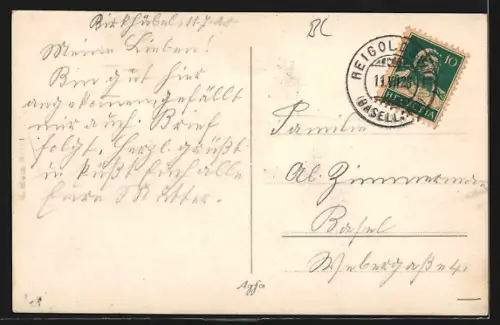 Birkhübel, 11.7.28
Meine Lieben!
Bin gut hier
angekommen, gefällt
mir auch. Brief
folgt. Herzl. grüßt
u. küßt Euch alle
Eure Mutter.
BL
REIGOLDSWIL
11.VII.28
(BASELLAND)
10
HELVETIA
Familie
Ab. Zimmermann
Basel
Webergaße 4.
Agfa